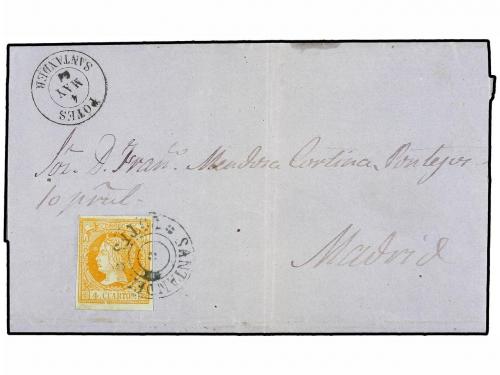 POTES
4
MAY
SANTANDER
Sor. D. Franco. Mendosa Cortina, Pontejos
10 pral.
Madrid
4 CUARTOS
SANTANDER